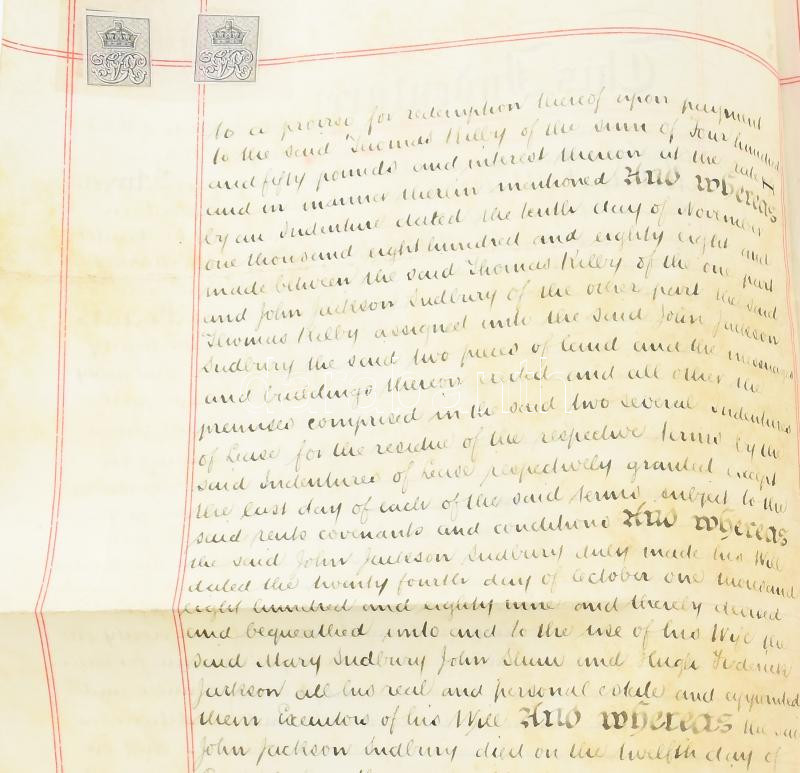 VR VR
to a proviso for redemption thereof upon payment
to the said Thomas Kilby of the sum of Four hundred
and fifty pounds and interest thereon at the rate
and in manner therein mentioned And whereas
by an Indenture dated the tenth day of November
one thousand eight hundred and eighty eight and
made between the said Thomas Kilby of the one part
and John Jackson Sudbury of the other part the said
Thomas Kilby assigned unto the said John Jackson
Sudbury the said two pieces of land and the messuages
and buildings thereon erected and all other the
premises comprised in the said two several Indentures
of Lease for the residue of the respective terms by the
said Indentures of Lease respectively granted except
the last day of each of the said terms subject to the
said rents covenants and conditions And whereas
the said John Jackson Sudbury duly made his Will
dated the twenty fourth day of October one thousand
eight hundred and eighty nine and thereby devised
and bequeathed unto and to the use of his Wife the
said Mary Sudbury John Shaw and Hugh Frederick
Jackson all his real and personal estate and appointed
them Executors of his Will And whereas the said
John Jackson Sudbury died on the twelfth day of